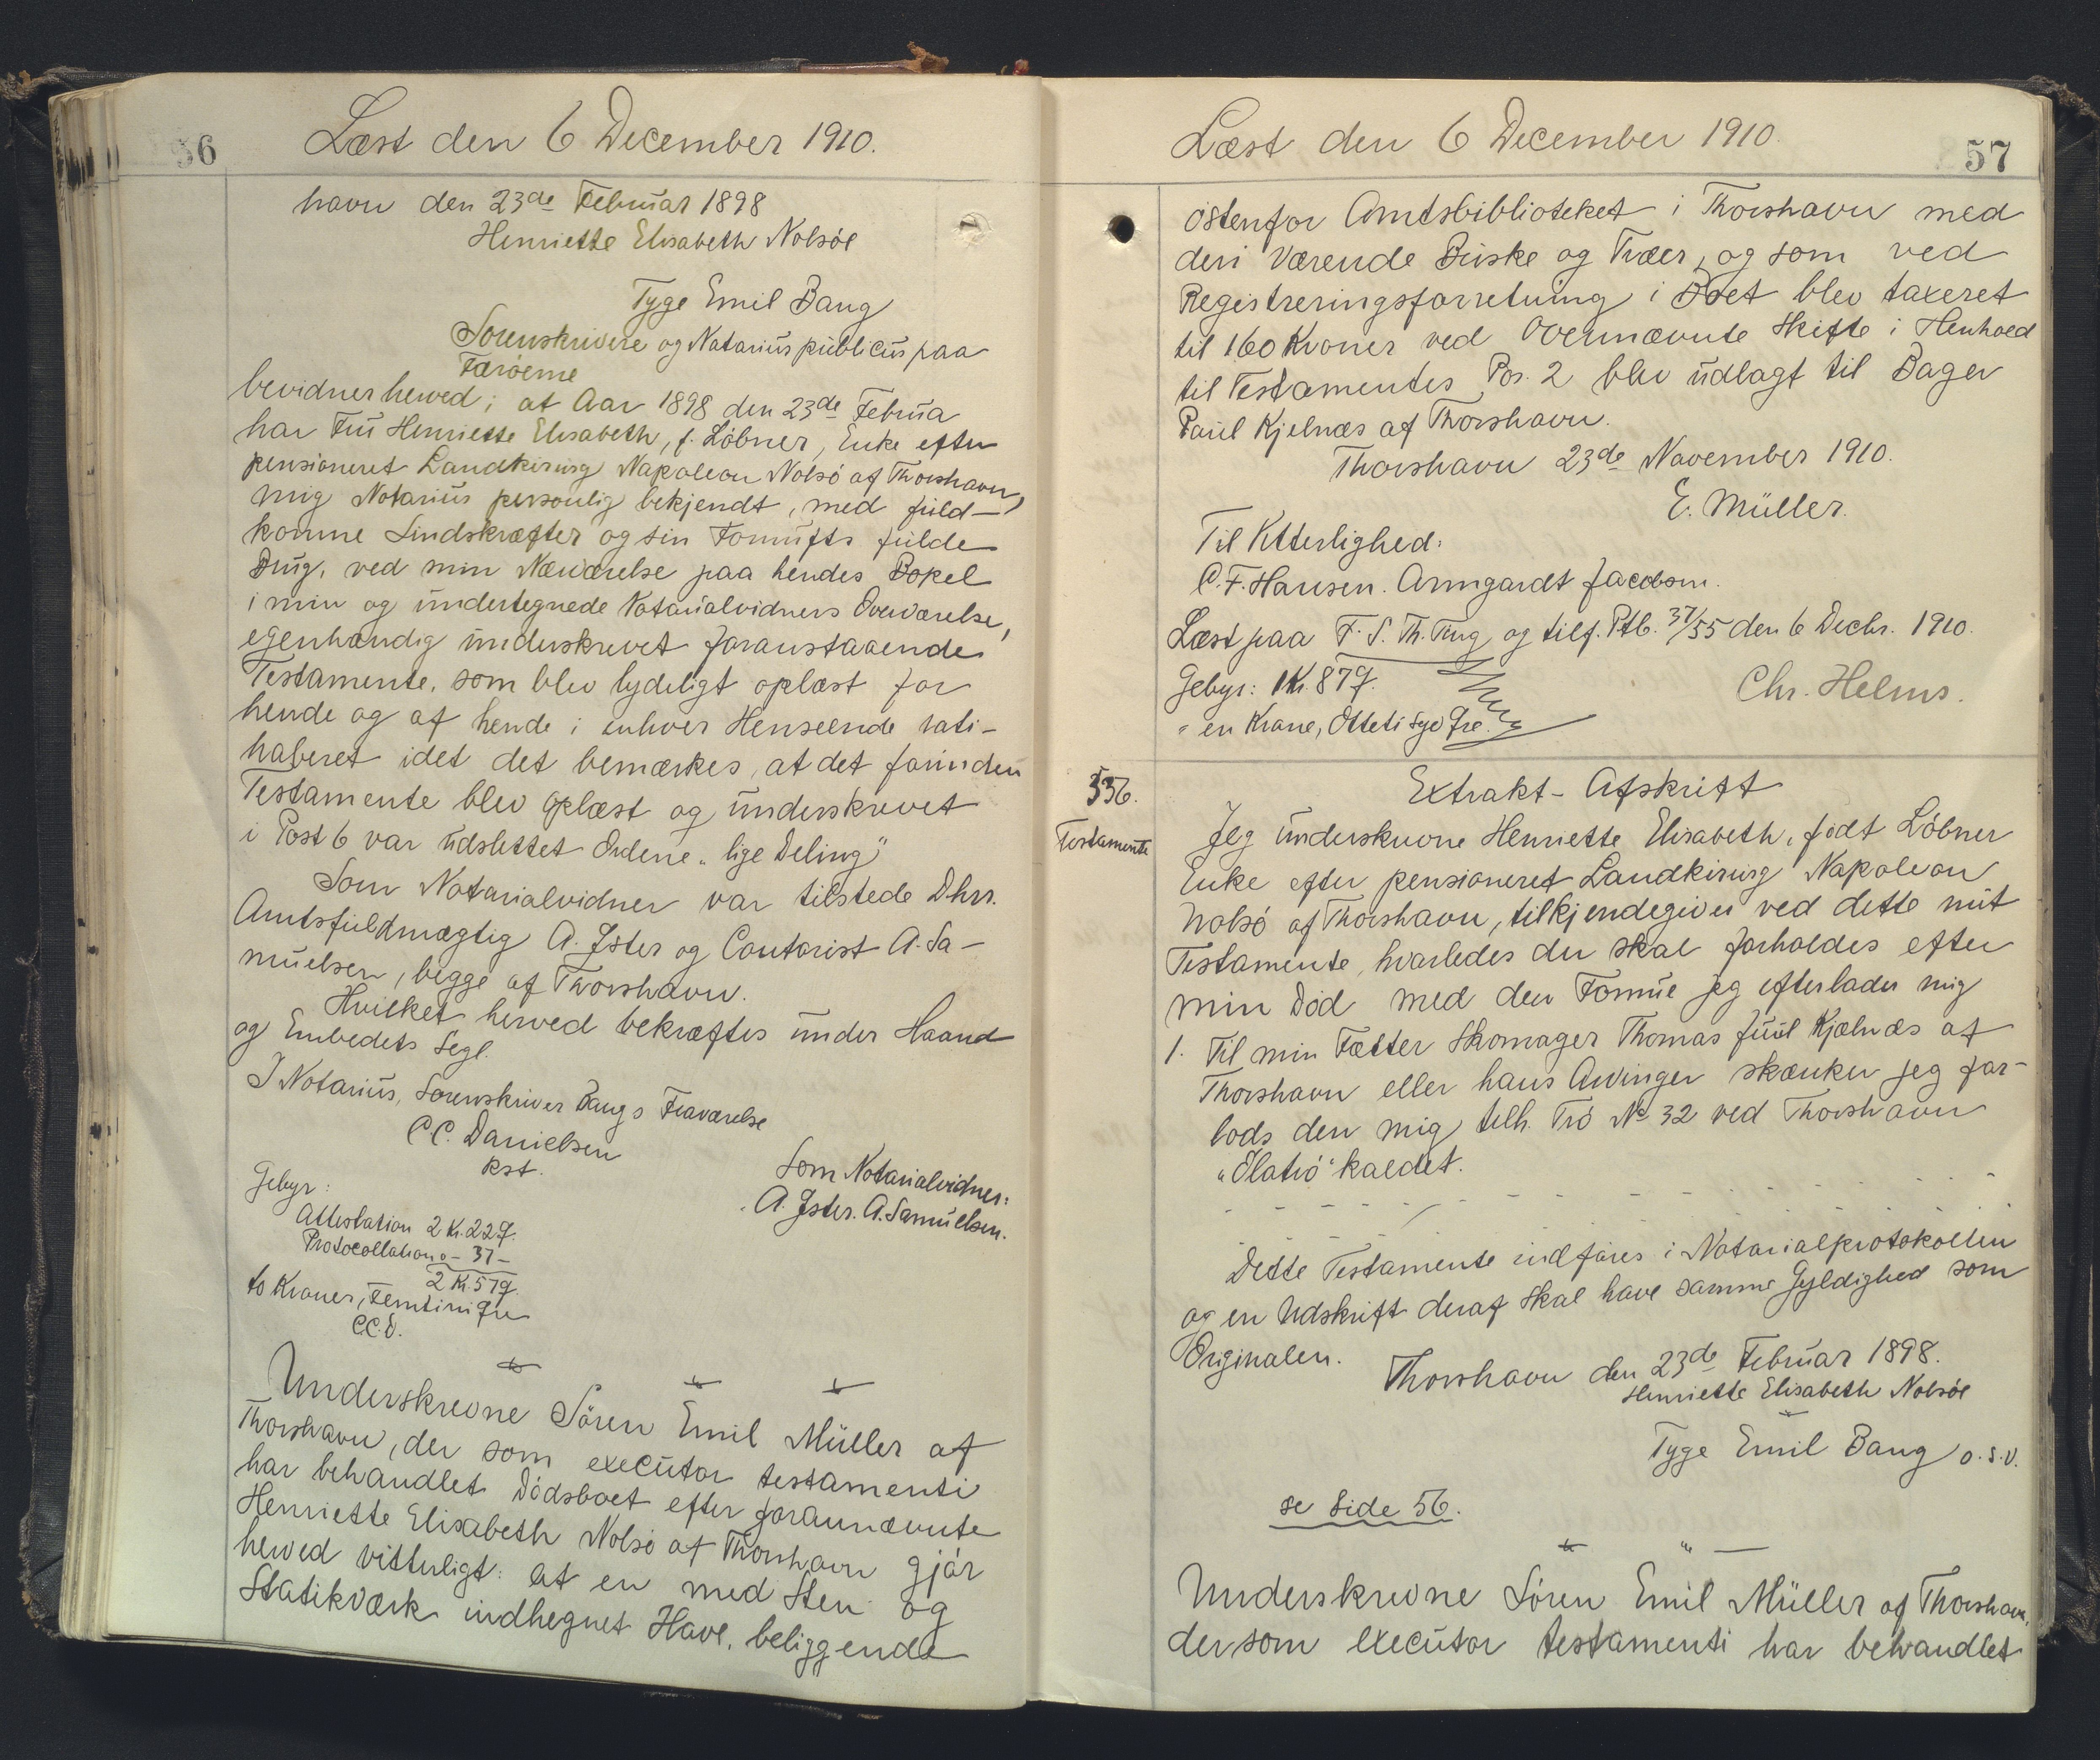 56
Læst den 6 December 1910.
havn den 23de Februar 1898
Henriette Elisabeth Nolsöe
Tyge Emil Bang
Sorenskrivere og Notarius publicus paa
Færöerne
bevidner herved; at Aar 1898 den 23de Februa
har Fru Henriette Elisabeth, f. Löbner, Enke efter
pensioneret Landkirurg Napoleon Nolsö af Thorshavn,
mig Notarius personlig bekjendt, med fuld-
komne Sindskræfter og sin Fornufts fulde
Brug, ved min Nærværelse paa hendes Bopel
i min og undertegnede Notarialvidners Overværelse,
egenhændig underskrevet foranstaaende
Testamente, som blev lydeligt oplæst for
hende og af hende i enhver Henseende rati-
haberet idet det bemærkes, at det forinden
Testamente blev oplæst og underskrevet
i Post 6 var udslettet Ordene "lige Deling"
Som Notarialvidner var tilstede Dhrr.
Amtsfuldmægtig A. Jster og Contorist A. Sa-
muelsen, begge af Thorshavn.
Hvilket herved bekræftes under Haand
og Embedets Segl.
I Notarius, Sorenskriver Bangs Fraværelse
C.C. Danielsen
kst.
Som Notarialvidner:
A. Jster. A. Samuelsen.
Gebyr:
Attestation 2 Kr. 22 Ø.
Protocollation o - 37 -
2 Kr. 59 Ø.
to Kroner, Femtini Øre
C.C.D.
Underskrevne Sören Emil Müller af
Thorshavn, der som executor testamenti
har behandlet Dödsboet efter forannævnte
Henriette Elisabeth Nolsö af Thorshavn gjör
herved vitterligt: at en med Sten og
Statikværk indhegnet Have, beliggende
57
Læst den 6 December 1910.
östenfor Amtsbiblioteket i Thorshavn med
deri Værende Buske og Træer, og som ved
Registreringsforretning i Boet blev taxeret
til 160 Kroner ved Overnævnte Skifte i Henhold
til Testamentes Pos. 2 blev udlagt til Bager
Paul Kjelnæs af Thorshavn.
Thorshavn 23de November 1910.
E. Müller.
Til Vitterlighed:
C.F. Hansen. Armgardt Jacobsen.
Læst paa F. S. Th. Ting og tilf. Ptb. 37/55 den 6 Decbr. 1910.
Gebyr: 1 Kr. 87 Ø.
" en Krone, Otteti syv Øre.
Chr. Helms.
336.
Testamente
Extrakt-Afskrift
Jeg underskrevne Henriette Elisabeth, född Löbner
Enke efter pensioneret Landkirurg Napoleon
Nolsö af Thorshavn, tilkjendegiver ved dette mit
Testamente, hvorledes der skal forholdes efter
min Död med den Formue jeg efterlader mig
1. Til min Fætter Skomager Thomas Juul Kjælnæs af
Thorshavn eller hans Arvinger skænker jeg for-
lods den mig tilh. Trö No 32 ved Thorshavn
"Olatrö" kaldet.
Dette Testamente indføres i Notarialprotokollen
og en Udskrift deraf skal have samme Gyldighed som
Originalen.
Thorshavn den 23de Februar 1898.
Henriette Elisabeth Nolsöe
Tyge Emil Bang o.s.v.
se Side 56.
Underskrevne Sören Emil Müller af Thorshavn,
der som executor testamenti har behandlet